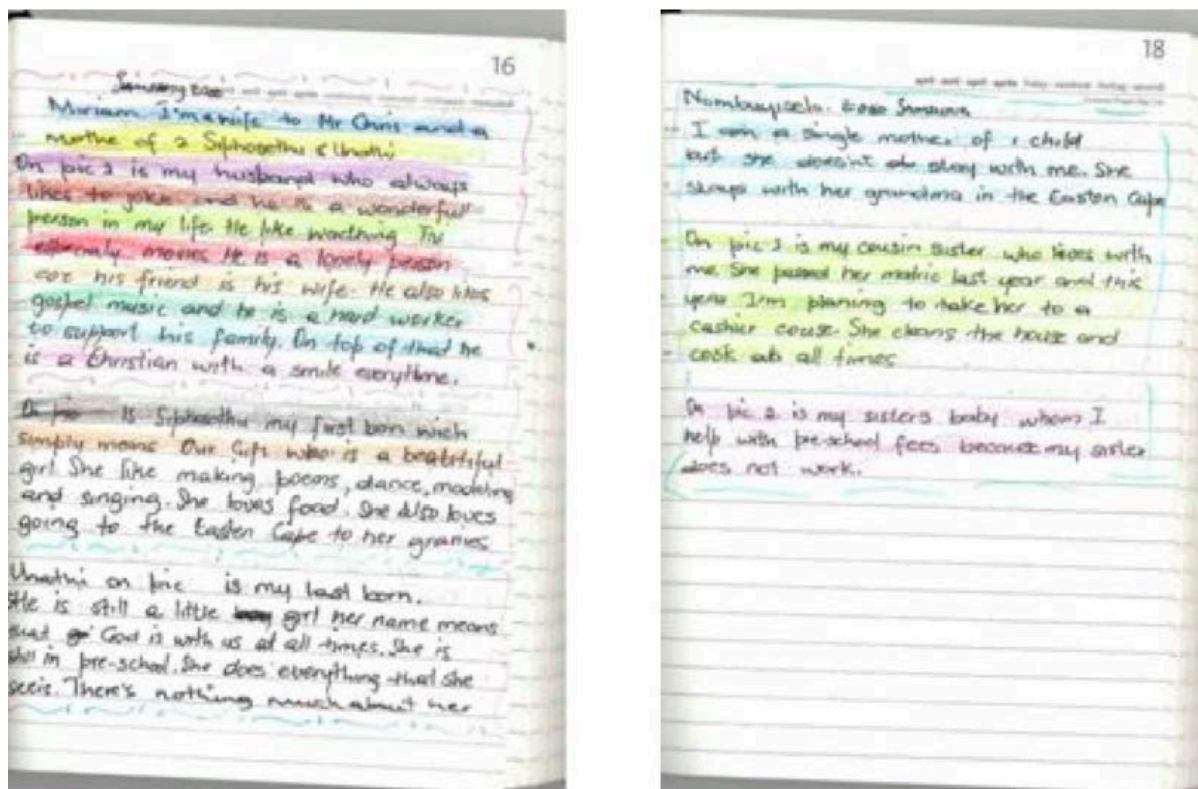 16
Miriam I'm a wife to Mr Chris and a
mothe of 2 Siphosethu & Unathi
On pic 3 is my husband who always
likes to joke and he is a wonderful
person in my life. He like wacthing TV
espernaly movies He is a lonely person
coz his friend is his wife. He also likes
gospel music and he is a hard worker
to support his family. On top of that he
is a Christian with a smile everytime.
Is Siphosethu my first born wich
simply means Our Gift who is a beatutiful
girl. She like making poems, dance, modeling
and singing. She loves food. She also loves
going to the Easten Cape to her granies
Unathi on pic is my last born.
He is still a little girl her name means
that God is with us at all times. She is
still in pre-school. She does everything that she
sees. There's nothing much about her
18
Nombuyiselo.
I am a single mother of 1 child
but she doesn't stay with me. She
stays with her grandma in the Easten Cape
On pic 3 is my cousin sister who lives with
me. She passed her matric last year and this
year I'm planing to take her to a
cashier couse. She cleans the house and
cook at all times
On pic 2 is my sisters baby whom I
help with pre-school fees because my sister
does not work.